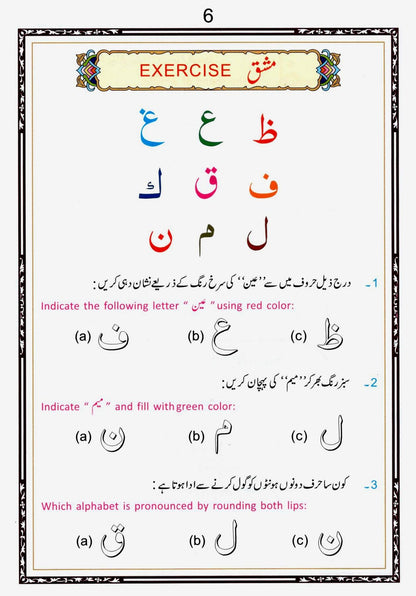 6
EXERCISE مشق
ظ ع غ
ف ق ك
ل م ن
1۔ درج ذیل حروف میں سے ’’عین‘‘ کی سرخ رنگ کے ذریعے نشان دہی کریں:
Indicate the following letter “ عین ” using red color:
(a) ف (b) ع (c) ظ
2۔ سبز رنگ بھر کر ’’میم‘‘ کی پہچان کریں:
Indicate “ میم ” and fill with green color:
(a) ن (b) م (c) ل
3۔ کون سا حرف دونوں ہونٹوں کو گول کرنے سے ادا ہوتا ہے:
Which alphabet is pronounced by rounding both lips:
(a) ق (b) ل (c) ن